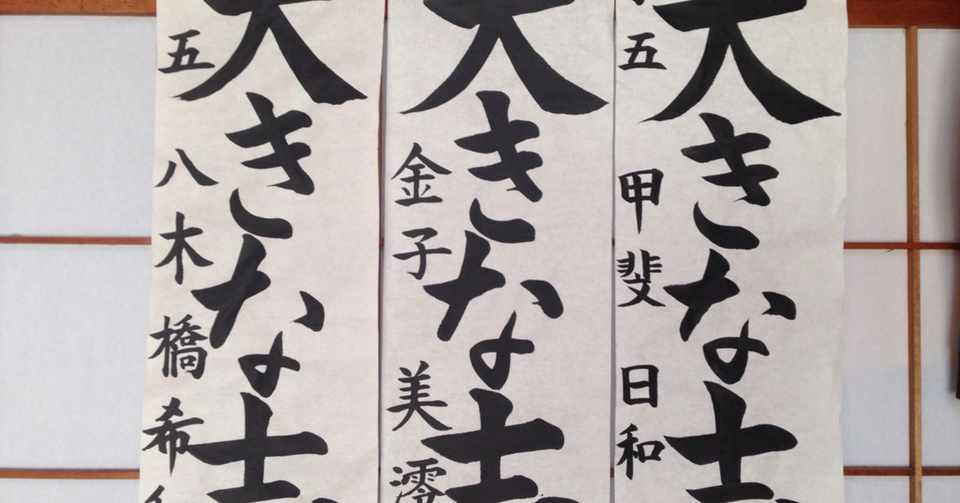 大きな志
五 甲斐 日和
大きな志
金子 美澪
大きな志
五 八木橋希